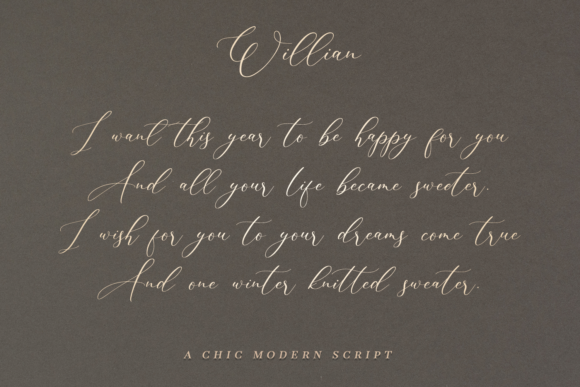 Willian
I want this year to be happy for you
And all your life became sweeter.
I wish for you to your dreams come true
And one winter knitted sweater.
A CHIC MODERN SCRIPT